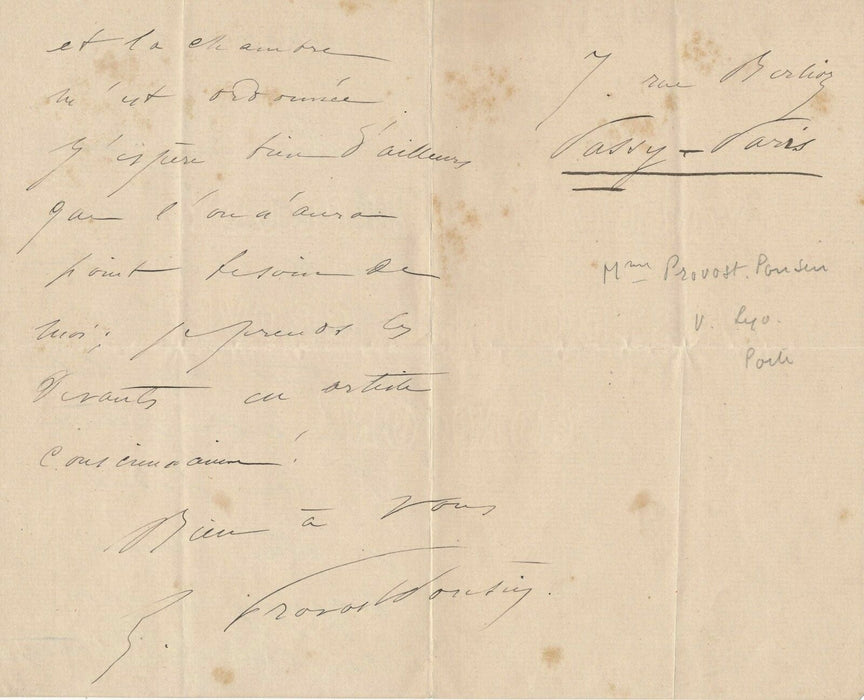 et la chambre
m'est ordonnée
J'espère bien d'ailleurs
que l'on n'aura
point besoin de
moi; je prends les
devants en artiste
consciencieuse!
Bien à vous
E. Provost Ponsin.
7. rue Berlioz
Passy - Paris
Mme Provost. Ponsin
V. Lyo.